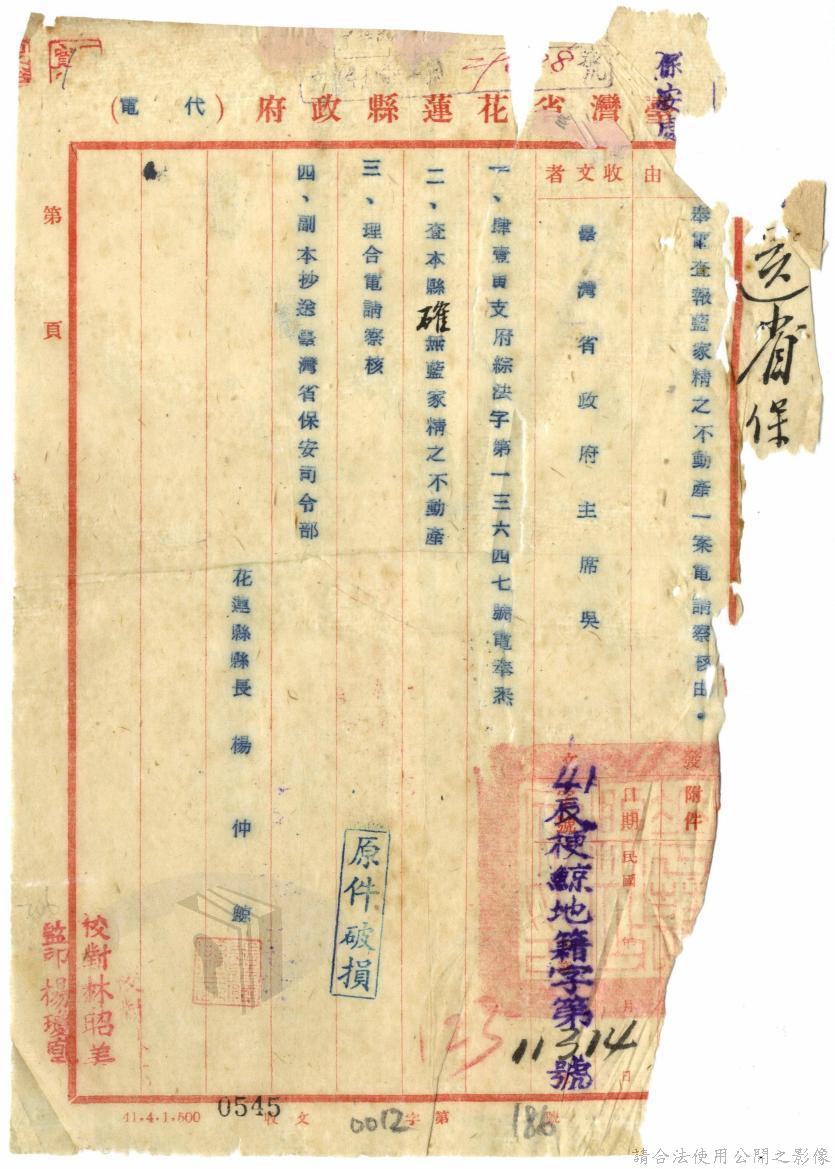 保安處
臺灣省花蓮縣政府（代電）
由
奉電查報藍家精之不動產一案電請察核由。
收文者
臺灣省政府主席吳
一、肆壹寅支府綜法字第一三六四七號電奉悉
二、查本縣確無藍家精之不動產
三、理合電請察核
四、副本抄送臺灣省保安司令部
花蓮縣縣長 楊仲鯨
送省保
發
附件
日期
民國
月
日
41辰梗鯨地籍字第11314號
原件破損
校對林昭美
監印楊瓊
第 頁
號
123
41.4.1.500
0545
收文 字第 號
0012
186
請合法使用公開之影像